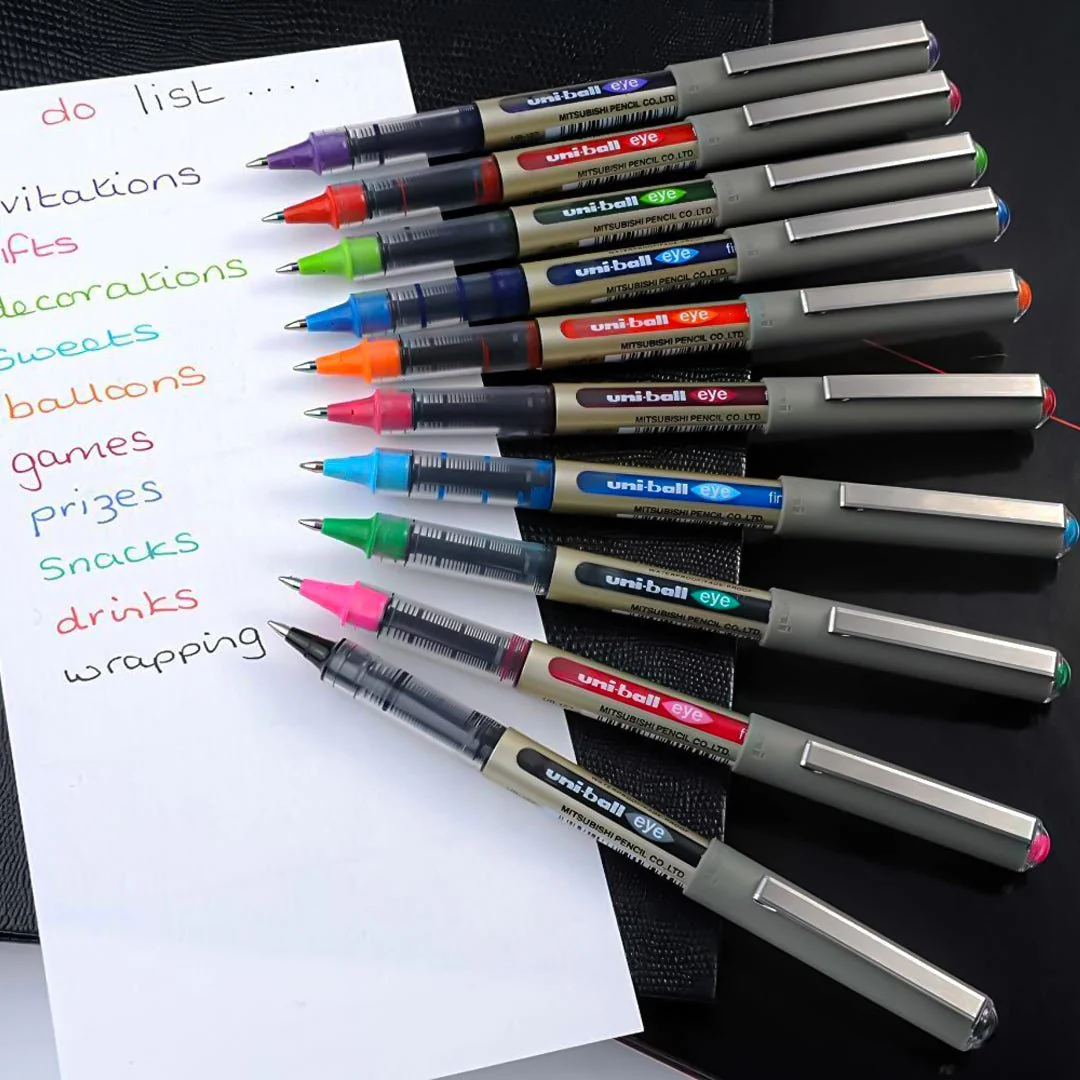 do list ....
vitations
ifts
decorations
sweets
balloons
games
prizes
snacks
drinks
wrapping
uni-ball eye
MITSUBISHI PENCIL CO.,LTD.
uni-ball eye
MITSUBISHI PENCIL CO.,LTD.
uni-ball eye
MITSUBISHI PENCIL CO.,LTD.
uni-ball eye fi
MITSUBISHI PENCIL CO.,LTD.
uni-ball eye
MITSUBISHI PENCIL CO.,LTD.
uni-ball eye f
MITSUBISHI PENCIL CO.,LTD.
uni-ball eye fin
MITSUBISHI PENCIL CO.,LTD.
WATERPROOF/FADE-PROOF
uni-ball eye
MITSUBISHI PENCIL CO.,LTD.
uni-ball eye f
MITSUBISHI PENCIL CO.,LTD.
uni-ball eye
MITSUBISHI PENCIL CO.,LTD.